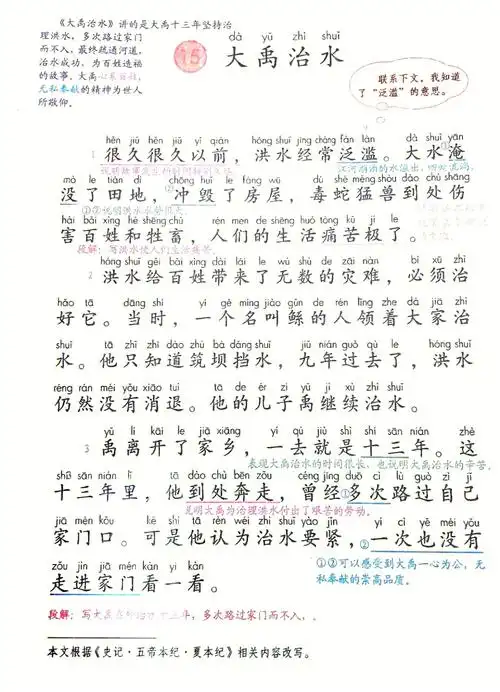 《大禹治水》讲的是大禹十三年坚持治
理洪水,多次路过家门
而不入,最终疏通河道,
治水成功,为百姓造福
的故事。大禹心系百姓,
无私奉献的精神为世人
所敬仰。
dà yǔ zhì shuǐ
15 大禹治水
联系下文,我知道
了“泛滥”的意思。
hěn jiǔ hěn jiǔ yǐ qián hóng shuǐ jīng cháng fàn làn dà shuǐ yān
1 很久很久以前,洪水经常泛滥。大水淹
说明故事发生的时间
江河湖泊的水溢出,
mò le tián dì chōng huǐ le fáng wū dú shé měng shòu dào chù shāng
没了田地,冲毁了房屋,毒蛇猛兽到处伤
hài bǎi xìng hé shēng chù rén men de shēng huó tòng kǔ jí le
害百姓和牲畜,人们的生活痛苦极了。
段解:写洪水使人们生活痛苦。
hóng shuǐ gěi bǎi xìng dài lái le wú shù de zāi nàn bì xū zhì
2 洪水给百姓带来了无数的灾难,必须治
hǎo tā dāng shí yí gè míng jiào gǔn de rén lǐng zhe dà jiā zhì
好它。当时,一个名叫鲧的人领着大家治
shuǐ tā zhǐ zhī dào zhù bà dǎng shuǐ jiǔ nián guò qù le hóng shuǐ
水。他只知道筑坝挡水,九年过去了,洪水
réng rán méi yǒu xiāo tuì tā de ér zi yǔ jì xù zhì shuǐ
仍然没有消退。他的儿子禹继续治水。
yǔ lí kāi le jiā xiāng yí qù jiù shì shí sān nián zhè
3 禹离开了家乡,一去就是十三年。这
表现大禹治水的时间很长,也说明大禹治水的辛苦。
shí sān nián lǐ tā dào chù bēn zǒu céng jīng duō cì lù guò zì jǐ
十三年里,他到处奔走,曾经①多次路过自己
说明大禹为治理洪水付出了艰苦的劳动。
jiā mén kǒu kě shì tā rèn wéi zhì shuǐ yào jǐn yí cì yě méi yǒu
家门口。可是他认为治水要紧,②一次也没有
zǒu jìn jiā mén kàn yi kàn
走进家门看一看。
①②可以感受到大禹一心为公,无
私奉献的崇高品质。
段解:写大禹在外治水十三年,多次路过家门而不入。
本文根据《史记·五帝本纪·夏本纪》相关内容改写。